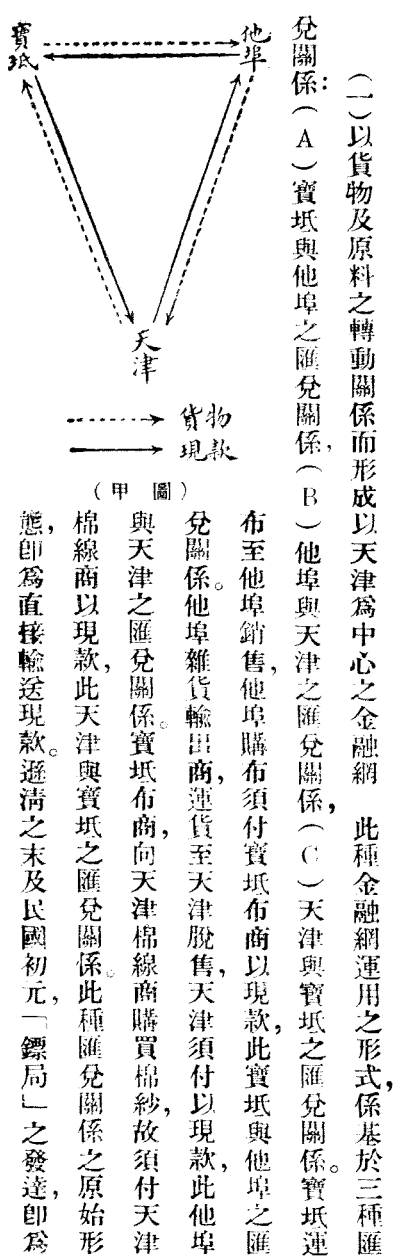 (一)以貨物及原料之轉動關係而形成以天津爲中心之金融網　此種金融網運用之形式,係基於三種匯
兌關係:(A)寶坻與他埠之匯兌關係,(B)他埠與天津之匯兌關係,(C)天津與寶坻之匯兌關係。寶坻運
布至他埠銷售,他埠購布須付寶坻布商以現款,此寶坻與他埠之匯
兌關係。他埠雜貨輸出商,運貨至天津脫售,天津須付以現款,此他埠
與天津之匯兌關係。寶坻布商,向天津棉線商購買棉紗,故須付天津
棉線商以現款,此天津與寶坻之匯兌關係。此種匯兌關係之原始形
態,卽爲直接輸送現款。遜清之末及民國初元,「鏢局」之發達,卽爲
寶坻
他埠
天津
貨物
現款
(甲圖)